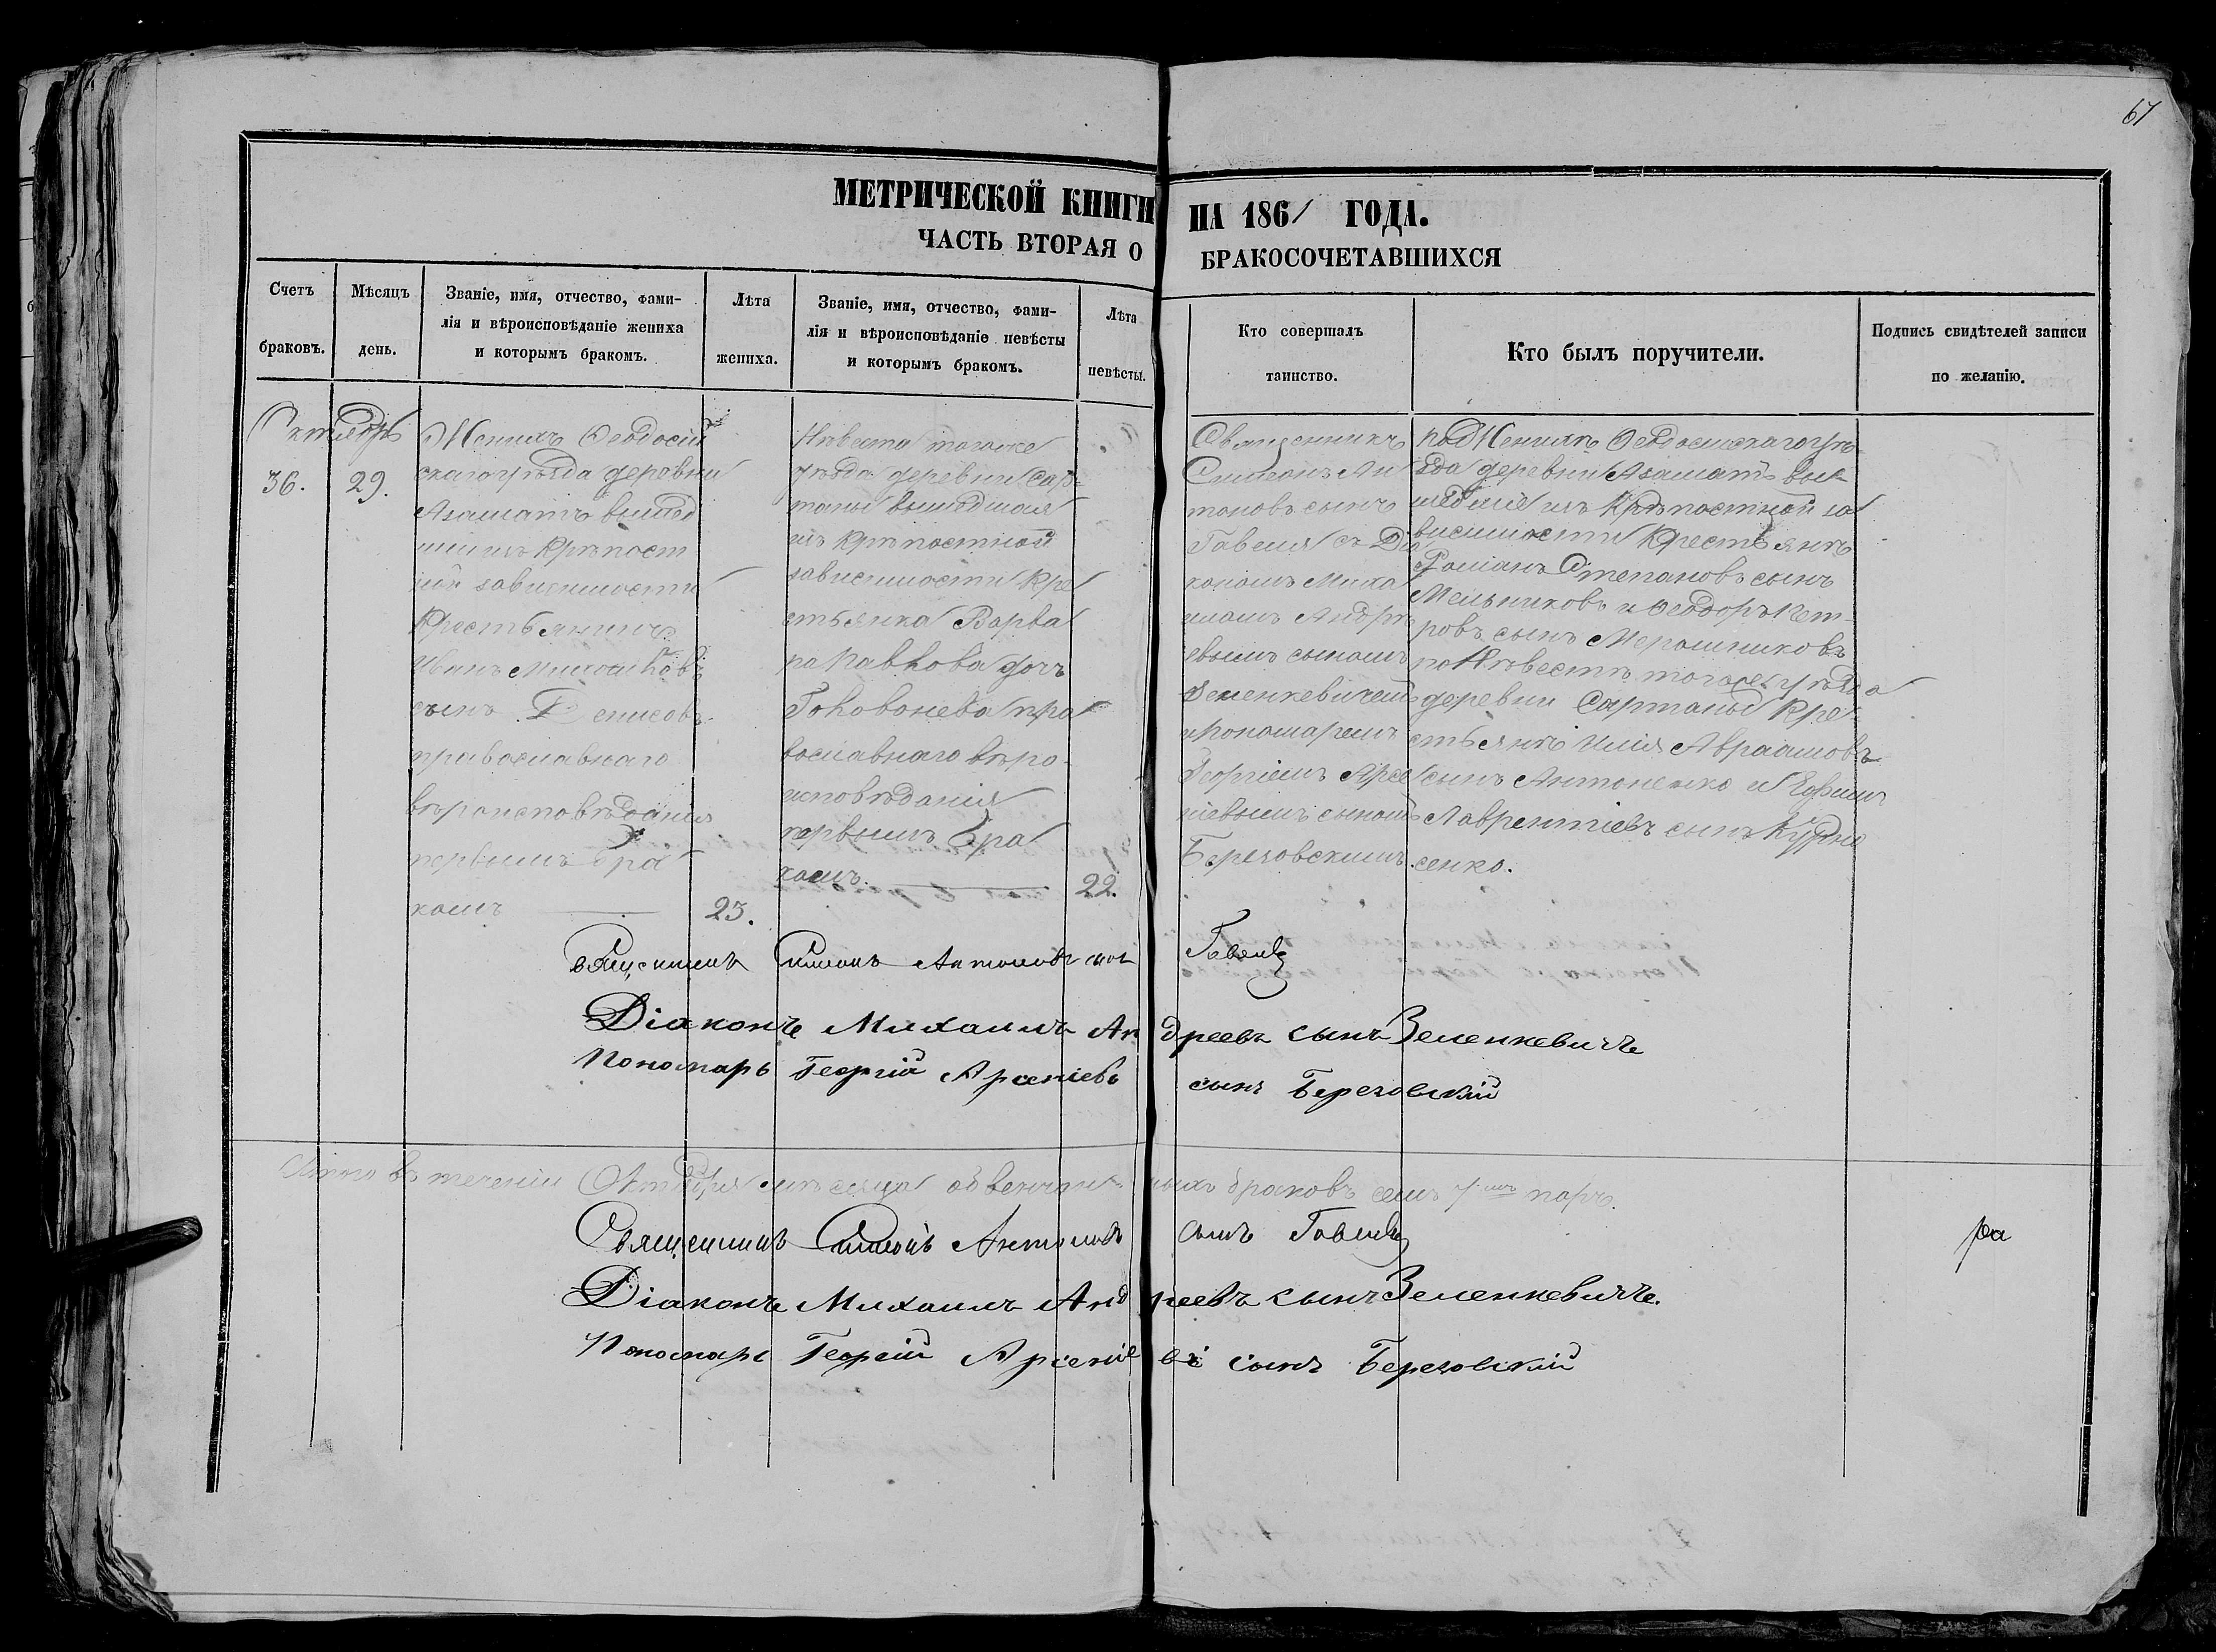 67
МЕТРИЧЕСКОЙ КНИГИ НА 1861 ГОДА.
ЧАСТЬ ВТОРАЯ О БРАКОСОЧЕТАВШИХСЯ
Счетъ браковъ.
Мѣсяцъ день.
Званіе, имя, отчество, фами-
лія и вѣроисповѣданіе жениха
и которымъ бракомъ.
Лѣта жениха.
Званіе, имя, отчество, фами-
лія и вѣроисповѣданіе невѣсты
и которымъ бракомъ.
Лѣта невѣсты.
Кто совершалъ
таинство.
Кто былъ поручители.
Подпись свидѣтелей записи
по желанію.
Октябрь
36.
29.
Женихъ Ѳеодосій
скаго уѣзда деревни
Азаматъ вышед
шій изъ крѣпост
ной зависимости
Крестьянинъ
Иванъ
сынъ Денисовъ
православнаго
вѣроисповѣданія
первымъ бра
комъ
23.
Невѣста тогоже
уѣзда деревни Сар
таны вышедшая
изъ крѣпостной
зависимости кре
стьянка Варва
ра Павлова дочь
Головонева пра
вославнаго вѣро
исповѣданія
первымъ бра
комъ.
22.
Священникъ
Симеонъ Ан
тоновъ сынъ
Гавеля съ Діа
кономъ Миха
иломъ Андре
евымъ сыномъ
Зеленкевичемъ
и пономаремъ
Георгіемъ Арсе
ніевымъ сыномъ
Березовскимъ.
по Женихѣ Ѳеодосійскаго уѣ
зда деревни Азаматъ вы
шедшіе изъ крѣпостной за
висимости крестьяне
Романъ Степановъ сынъ
Мельниковъ и Ѳеодоръ Пет
ровъ сынъ Мерошниковъ
по Невѣстѣ тогоже уѣзда
деревни Сартаны кре
стьяне Илія Авраамовъ
сынъ Антоненко и Ефимъ
Лаврентіевъ сынъ
сенко.
Священникъ Симеонъ Антоновъ сынъ Гавеля
Діаконъ Михаилъ Андреевъ сынъ Зеленкевичъ
Пономарь Георгій Арсеніевъ сынъ Березовскій
Итого въ теченіи Октября мѣсяца обвенчанныхъ браковъ семь 7мъ паръ.
Священникъ Симеонъ Антоновъ сынъ Гавеля
Діаконъ Михаилъ Андреевъ сынъ Зеленкевичъ.
Пономарь Георгій Арсеніевъ сынъ Березовскій